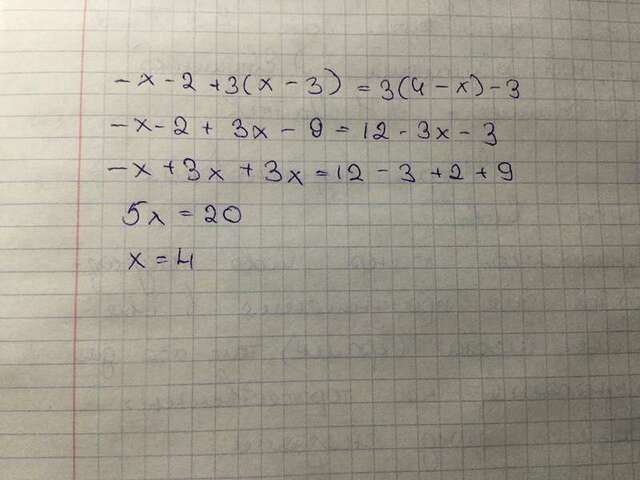 -x-2+3(x-3)=3(4-x)-3
-x-2+3x-9=12-3x-3
-x+3x+3x=12-3+2+9
5x=20
x=4